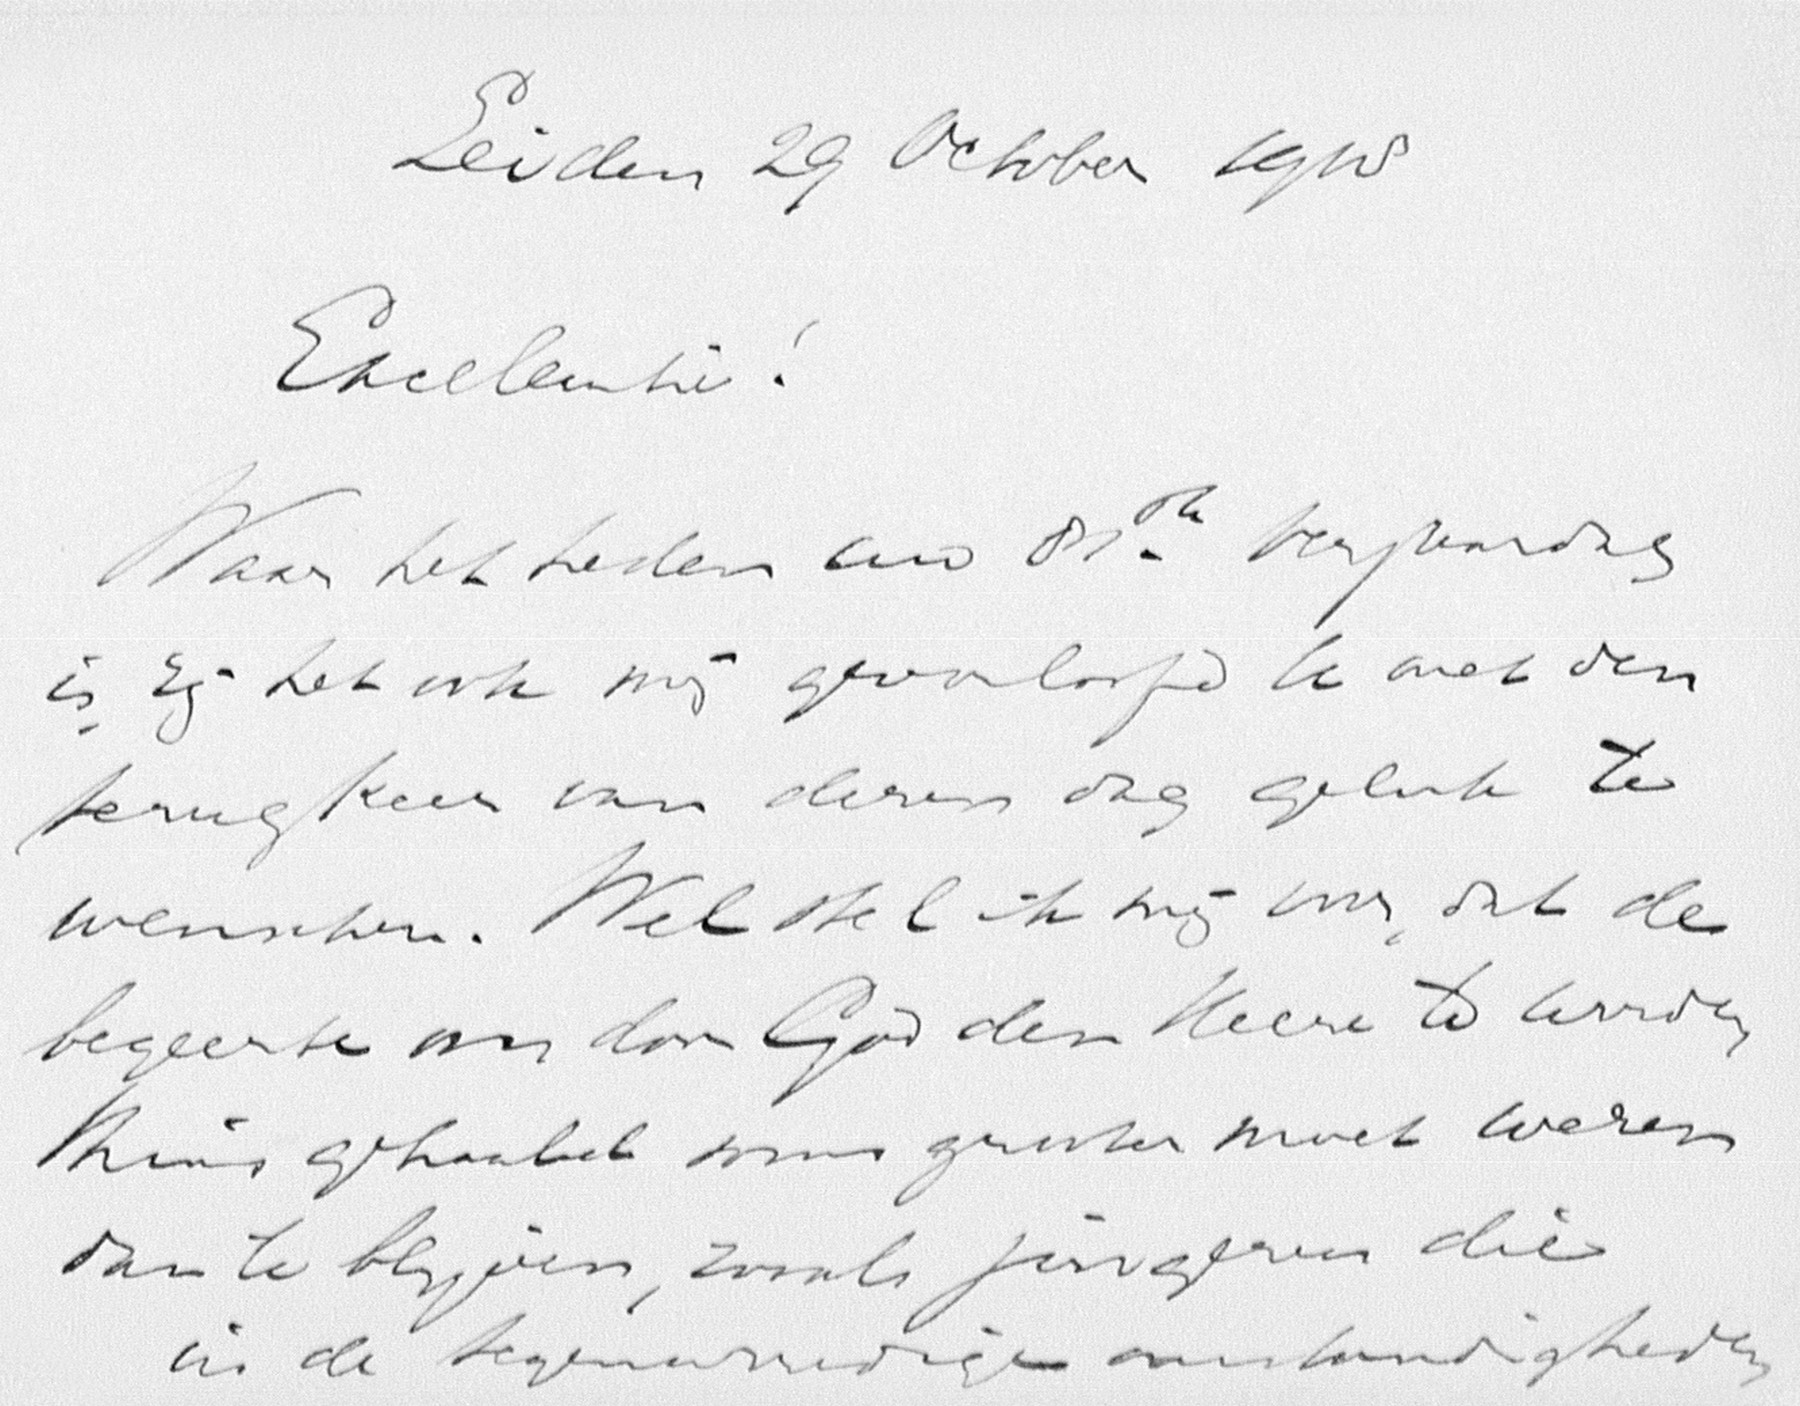 Leiden 29 October 1918
Excellentie!
Waar het heden uw 81ste verjaardag
is, zij het ook mij geoorloofd U met den
terugkeer van dezen dag geluk te
wenschen. Wel stel ik mij voor, dat de
begeerte om door God den Heere te worden
thuis gehaald soms grooter moet wezen
dan te blijven, zooals jongeren die
in de tegenwoordige omstandigheden